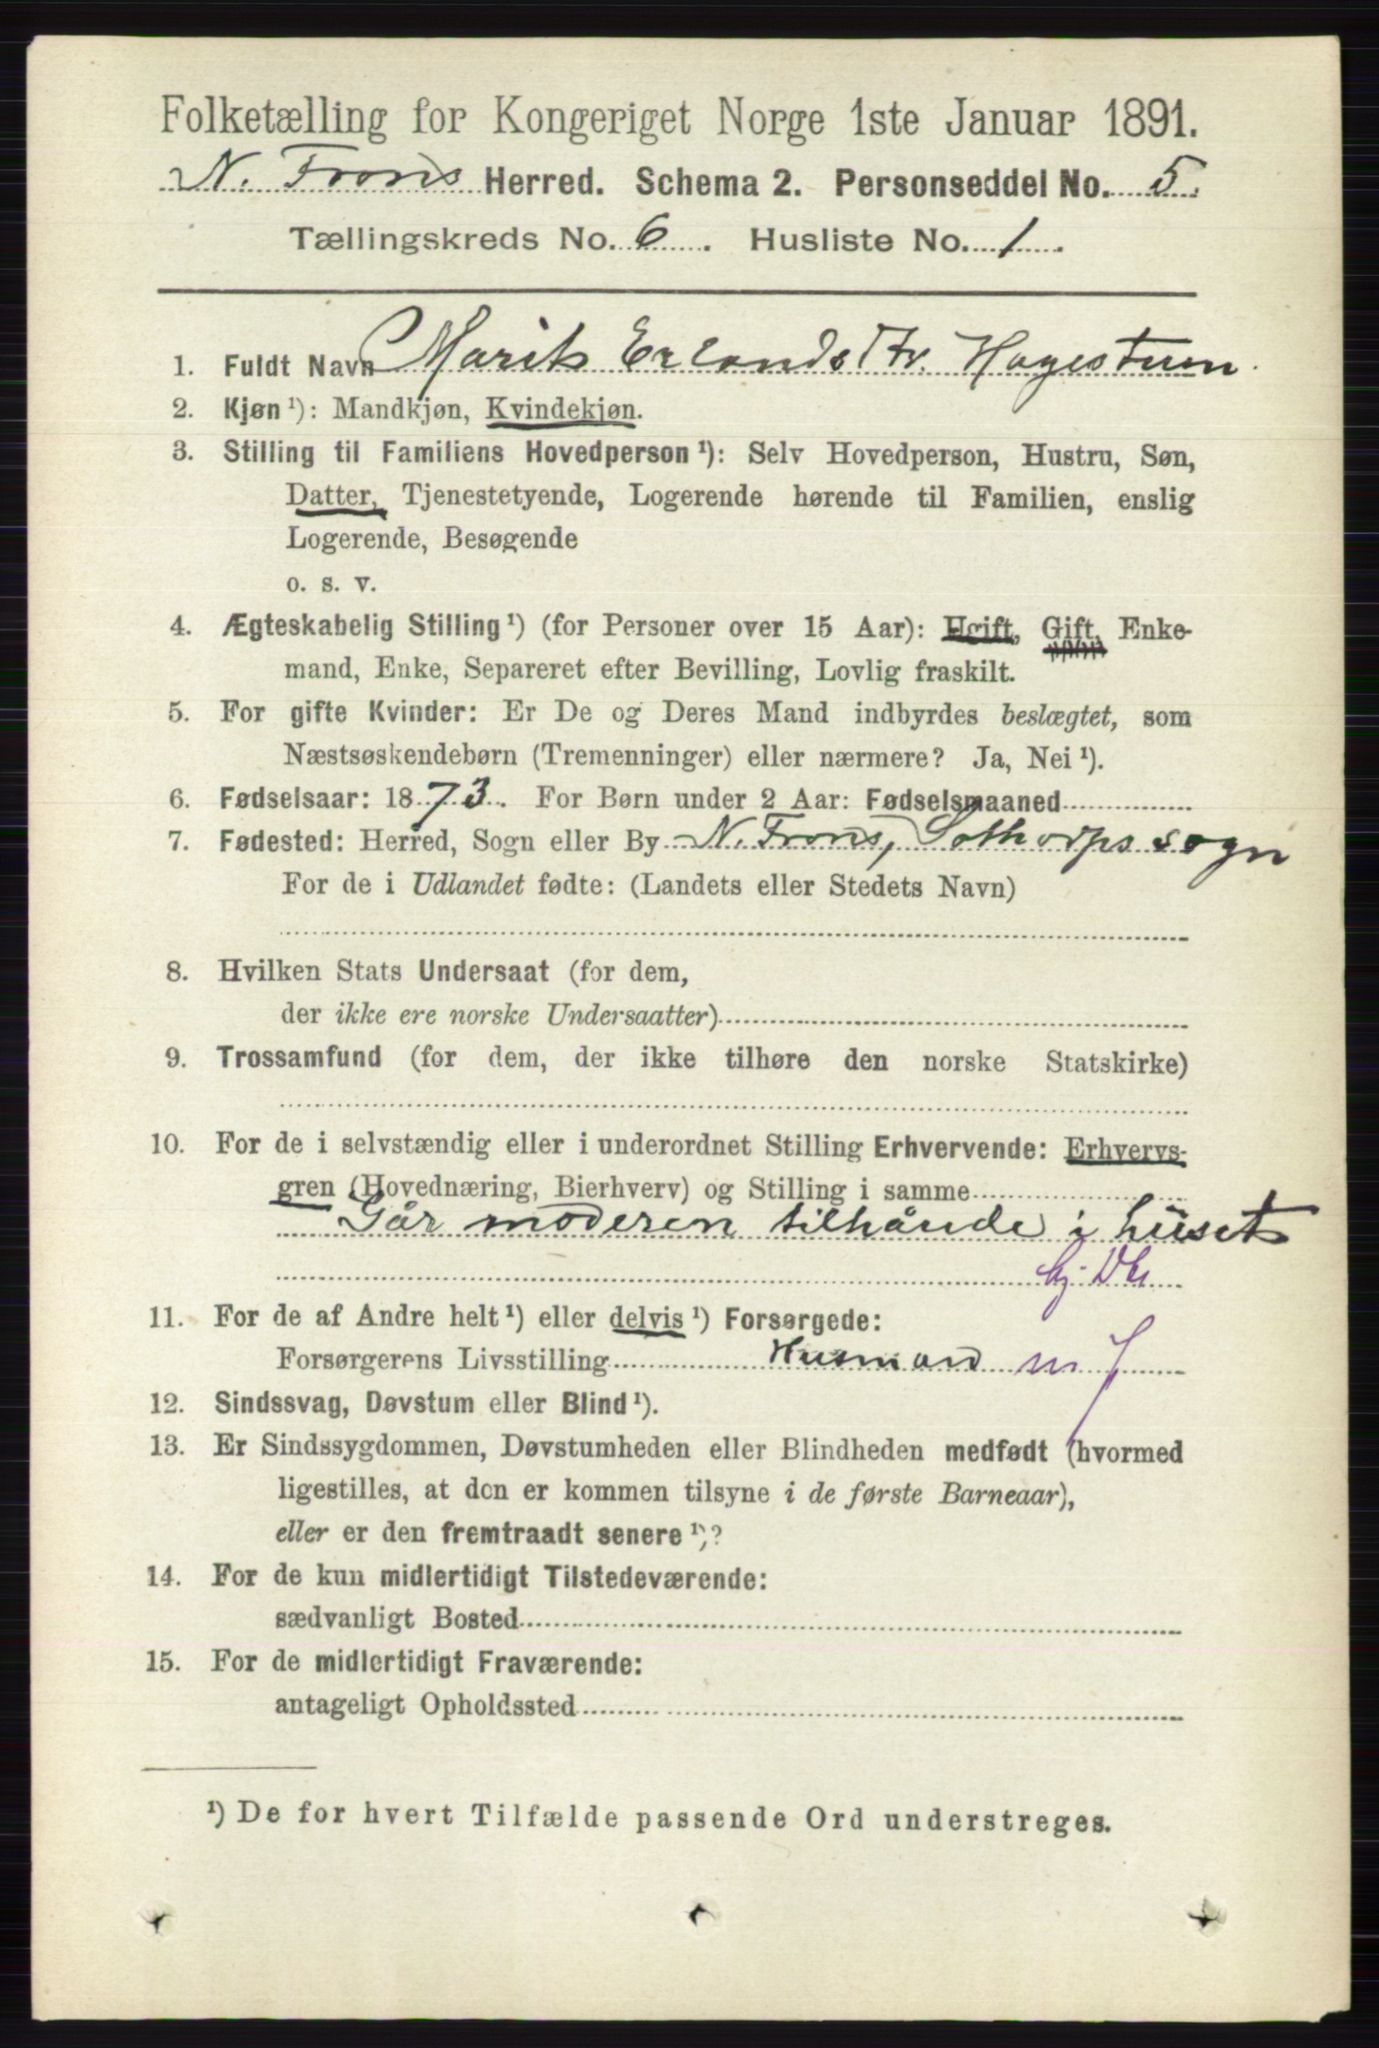 Folketælling for Kongeriget Norge 1ste Januar 1891.
N. Frons Herred. Schema 2. Personseddel No. 5.
Tællingskreds No. 6. Husliste No. 1.
1. Fuldt Navn Marit Erlandsdtr. Hagestuen.
2. Kjøn¹): Mandkjøn, Kvindekjøn.
3. Stilling til Familiens Hovedperson¹): Selv Hovedperson, Hustru, Søn,
Datter, Tjenestetyende, Logerende hørende til Familien, enslig
Logerende, Besøgende
o. s. v.
4. Ægteskabelig Stilling¹) (for Personer over 15 Aar): Ugift, Gift, Enke-
mand, Enke, Separeret efter Bevilling, Lovlig fraskilt.
5. For gifte Kvinder: Er De og Deres Mand indbyrdes beslægtet, som
Næstsøskendebørn (Tremenninger) eller nærmere? Ja, Nei¹).
6. Fødselsaar: 1873. For Børn under 2 Aar: Fødselsmaaned
7. Fødested: Herred, Sogn eller By N. Frons, Sothorps sogn
For de i Udlandet fødte: (Landets eller Stedets Navn)
8. Hvilken Stats Undersaat (for dem,
der ikke ere norske Undersaatter)
9. Trossamfund (for dem, der ikke tilhøre den norske Statskirke)
10. For de i selvstændig eller i underordnet Stilling Erhvervende: Erhvervs-
gren (Hovednæring, Bierhverv) og Stilling i samme
Går moderen tilhånde i huset
11. For de af Andre helt¹) eller delvis¹) Forsørgede:
Forsørgerens Livsstilling Husmand m J
12. Sindssvag, Døvstum eller Blind¹).
13. Er Sindssygdommen, Døvstumheden eller Blindheden medfødt (hvormed
ligestilles, at den er kommen tilsyne i de første Barneaar),
eller er den fremtraadt senere¹)?
14. For de kun midlertidigt Tilstedeværende:
sædvanligt Bosted
15. For de midlertidigt Fraværende:
antageligt Opholdssted
¹) De for hvert Tilfælde passende Ord understreges.